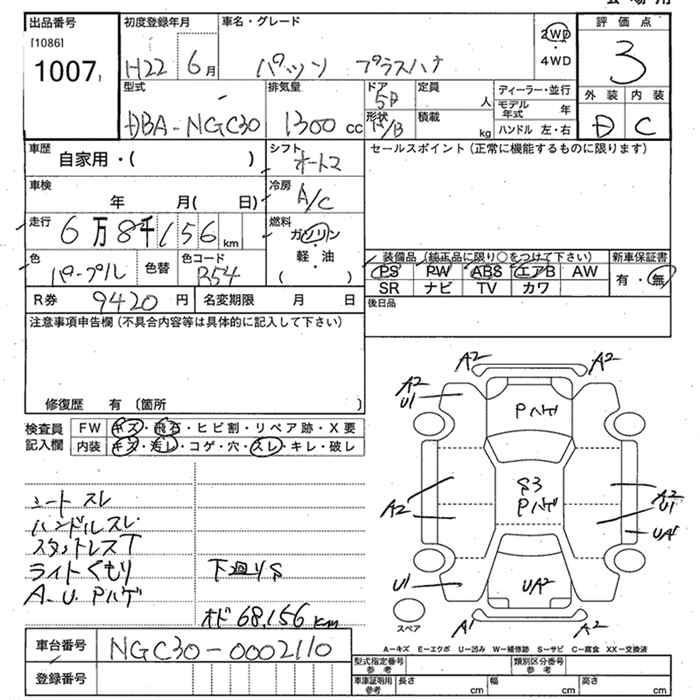 出品番号 初度登録年月 車名・グレード 評価点
[1086]
1007 H22 6月 パッソ プラスハナ 2WD
4WD 3
型式 排気量 ドア 定員 人 ディーラー・並行 外装 内装
DBA-NGC30 1300cc 5D モデル年式 年 D C
形状 H/B 積載 kg ハンドル 左・右
車歴 自家用・( ) シフト オートマ セールスポイント(正常に機能するものに限ります)
車検 年 月( 日) 冷房 A/C
走行 6万8千156km 燃料 ガソリン
軽・油
( )
色 パープル 色替 色コード R54
装備品(純正品に限り○をつけて下さい) 新車保証書
PS PW ABS エアB AW 有・無
SR ナビ TV カワ
R券 9420円 名変期限 月 日 後日品
注意事項申告欄(不具合内容等は具体的に記入して下さい)
修復歴 有 〔箇所 〕
検査員記入欄 FW キズ・飛石・ヒビ割・リペア跡・X要
内装 キズ・汚レ・コゲ・穴・スレ・キレ・破レ
シートスレ
ハンドルスレ
スタットレスT
ライトくもり 下廻りS
A.U.Pハゲ
オド 68,156km
A2 A2
A2
U1
Pハゲ
S3
Pハゲ
A2 A2
U1
UA1
U1 UA2
A1 A2
スペア
A-キズ E-エクボ U-凹み W-補修跡 S-サビ C-腐食 XX-交換済
車台番号 NGC30-0002110
登録番号
型式指定番号 参考 類別区分番号 参考
車庫証明用 参考 長さ cm 幅 cm 高さ cm